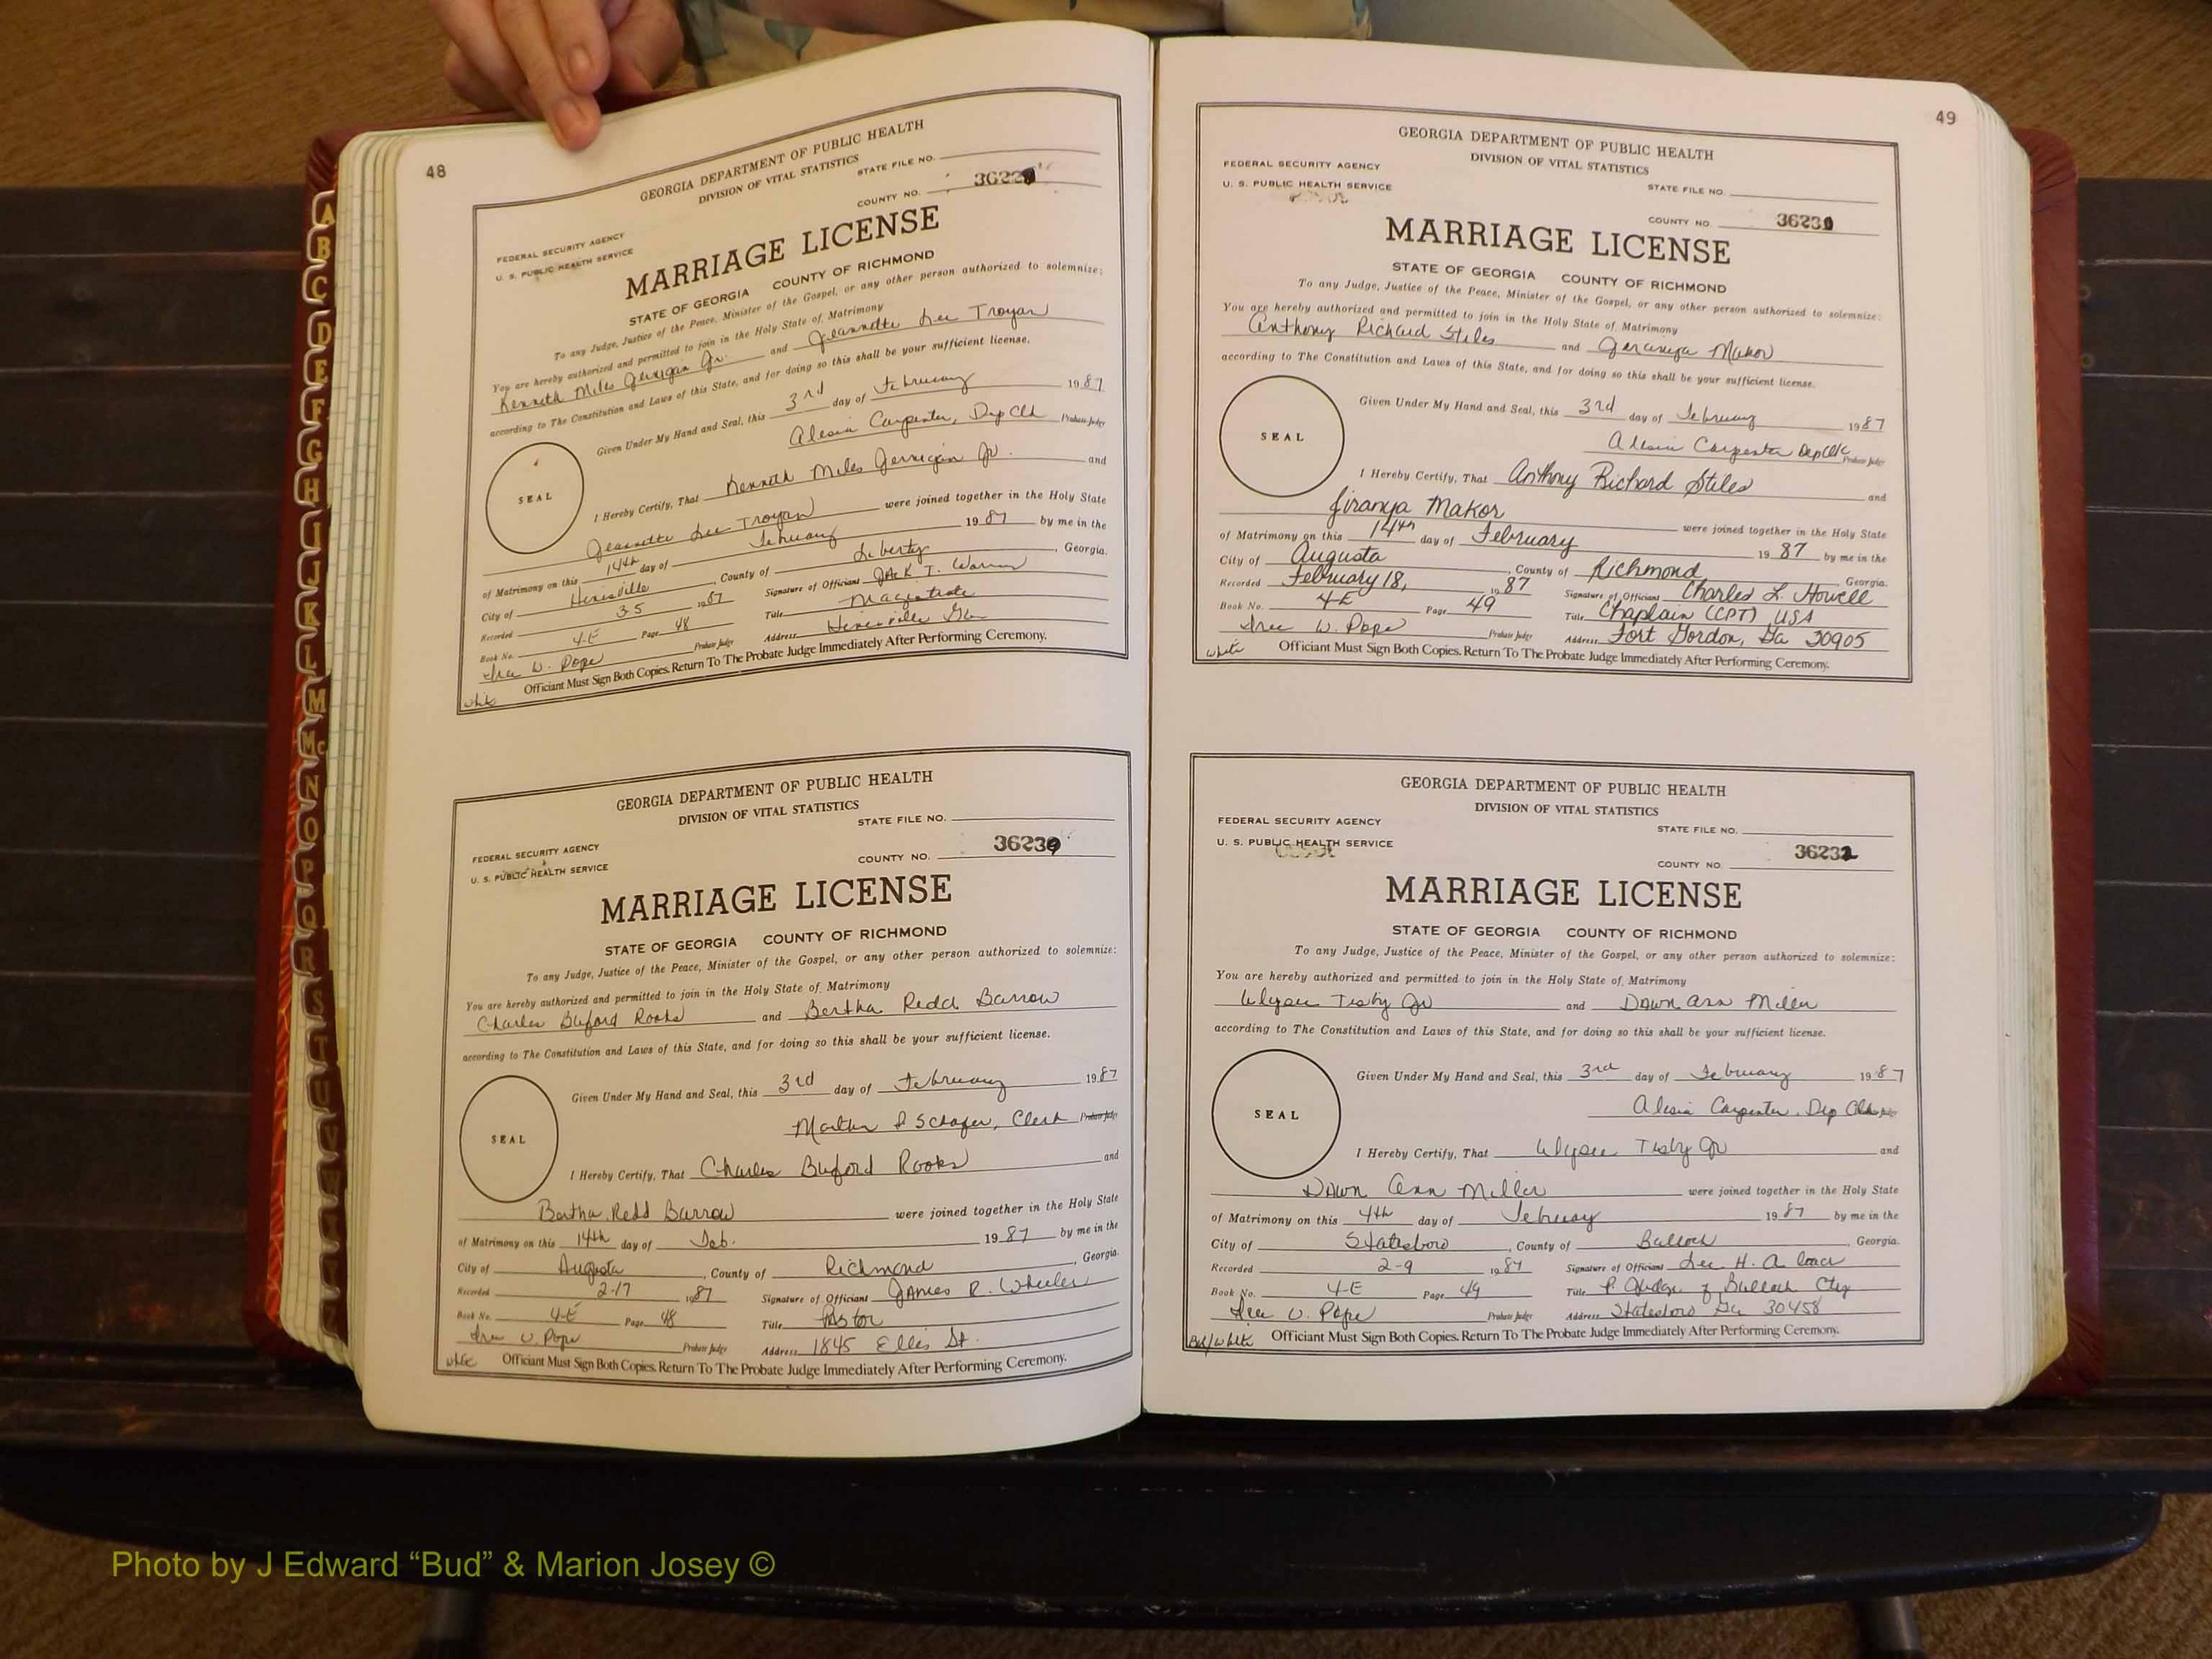 48
GEORGIA DEPARTMENT OF PUBLIC HEALTH
DIVISION OF VITAL STATISTICS
STATE FILE NO.
COUNTY NO.
FEDERAL SECURITY AGENCY
U. S. PUBLIC HEALTH SERVICE
MARRIAGE LICENSE
STATE OF GEORGIA COUNTY OF RICHMOND
To any Judge, Justice of the Peace, Minister of the Gospel, or any other person authorized to solemnize:
You are hereby authorized and permitted to join in the Holy State of Matrimony
Kenneth Miles Jernigan Jr. and Jeannette Lee Troyan
according to The Constitution and Laws of this State, and for doing so this shall be your sufficient license.
Given Under My Hand and Seal, this 3rd day of February 1987
Alesia Carpenter, Dep Clk Probate Judge
SEAL
I Hereby Certify, That Kenneth Miles Jernigan Jr. and
Jeannette Lee Troyan were joined together in the Holy State
of Matrimony on this 14th day of February 1987 by me in the
City of Hinesville, County of Liberty, Georgia.
Recorded 3-5 1987 Signature of Officiant Jack T. Warren
Book No. 4-E Page 48 Title Magistrate
W. Pope Probate Judge Address Hinesville Ga
Officiant Must Sign Both Copies. Return To The Probate Judge Immediately After Performing Ceremony.
white
GEORGIA DEPARTMENT OF PUBLIC HEALTH
DIVISION OF VITAL STATISTICS
STATE FILE NO.
FEDERAL SECURITY AGENCY
U. S. PUBLIC HEALTH SERVICE
COUNTY NO.
MARRIAGE LICENSE
STATE OF GEORGIA COUNTY OF RICHMOND
To any Judge, Justice of the Peace, Minister of the Gospel, or any other person authorized to solemnize:
You are hereby authorized and permitted to join in the Holy State of Matrimony
Charles Buford Rooks and Bertha Redd Barrow
according to The Constitution and Laws of this State, and for doing so this shall be your sufficient license.
Given Under My Hand and Seal, this 3rd day of February 1987
Schafer, Clerk Probate Judge
SEAL
I Hereby Certify, That Charles Buford Rooks and
Bertha Redd Barrow were joined together in the Holy State
of Matrimony on this 14th day of Feb. 1987 by me in the
City of Augusta, County of Richmond, Georgia.
Recorded 2-17 1987 Signature of Officiant James R. Wheeler
Book No. 4-E Page 48 Title Pastor
Pope Probate Judge Address 1845 Ellis St.
white Officiant Must Sign Both Copies. Return To The Probate Judge Immediately After Performing Ceremony.
49
GEORGIA DEPARTMENT OF PUBLIC HEALTH
DIVISION OF VITAL STATISTICS
FEDERAL SECURITY AGENCY
U. S. PUBLIC HEALTH SERVICE
STATE FILE NO.
COUNTY NO.
MARRIAGE LICENSE
STATE OF GEORGIA COUNTY OF RICHMOND
To any Judge, Justice of the Peace, Minister of the Gospel, or any other person authorized to solemnize:
You are hereby authorized and permitted to join in the Holy State of Matrimony
Anthony Richard Stiles and Makor
according to The Constitution and Laws of this State, and for doing so this shall be your sufficient license.
Given Under My Hand and Seal, this 3rd day of February 1987
Alesia Carpenter Dep Clk Probate Judge
SEAL
I Hereby Certify, That Anthony Richard Stiles and
Jiranya Makor were joined together in the Holy State
of Matrimony on this 14th day of February 1987 by me in the
City of Augusta, County of Richmond, Georgia.
Recorded February 18, 1987 Signature of Officiant Charles L. Howell
Book No. 4-E Page 49 Title Chaplain (CPT) USA
W. Pope Probate Judge Address Fort Gordon, Ga 30905
white Officiant Must Sign Both Copies. Return To The Probate Judge Immediately After Performing Ceremony.
GEORGIA DEPARTMENT OF PUBLIC HEALTH
DIVISION OF VITAL STATISTICS
FEDERAL SECURITY AGENCY
U. S. PUBLIC HEALTH SERVICE
STATE FILE NO.
COUNTY NO. 36232
MARRIAGE LICENSE
STATE OF GEORGIA COUNTY OF RICHMOND
To any Judge, Justice of the Peace, Minister of the Gospel, or any other person authorized to solemnize:
You are hereby authorized and permitted to join in the Holy State of Matrimony
Jr and Dawn Ann Miller
according to The Constitution and Laws of this State, and for doing so this shall be your sufficient license.
Given Under My Hand and Seal, this 3rd day of February 1987
Alesia Carpenter, Dep Clk
SEAL
I Hereby Certify, That Jr and
Dawn Ann Miller were joined together in the Holy State
of Matrimony on this 4th day of February 1987 by me in the
City of Statesboro, County of Bulloch, Georgia.
Recorded 2-9 1987 Signature of Officiant Lee H.
Book No. 4-E Page 49 Title P. Judge of Bulloch Cty
Pope Probate Judge Address Statesboro Ga 30458
Officiant Must Sign Both Copies. Return To The Probate Judge Immediately After Performing Ceremony.
A
B
C
D
E
F
G
H
I
J
K
L
M
Mc
N
O
P
Q
R
S
T
U
V
Photo by J Edward “Bud” & Marion Josey ©